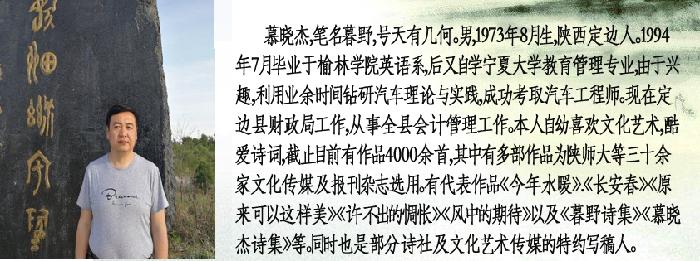 慕晓杰,笔名暮野,号天有几何。男,1973年8月生,陕西定边人。1994
年7月毕业于榆林学院英语系,后又自学宁夏大学教育管理专业,由于兴
趣,利用业余时间钻研汽车理论与实践,成功考取汽车工程师。现在定
边县财政局工作,从事全县会计管理工作。本人自幼喜欢文化艺术,酷
爱诗词,截止目前有作品4000余首,其中有多部作品为陕师大等三十余
家文化传媒及报刊杂志选用。有代表作品《今年水暖》、《长安春》《原
来可以这样美》《许不出的惆怅》《风中的期待》以及《暮野诗集》《慕晓
杰诗集》等。同时也是部分诗社及文化艺术传媒的特约写稿人。